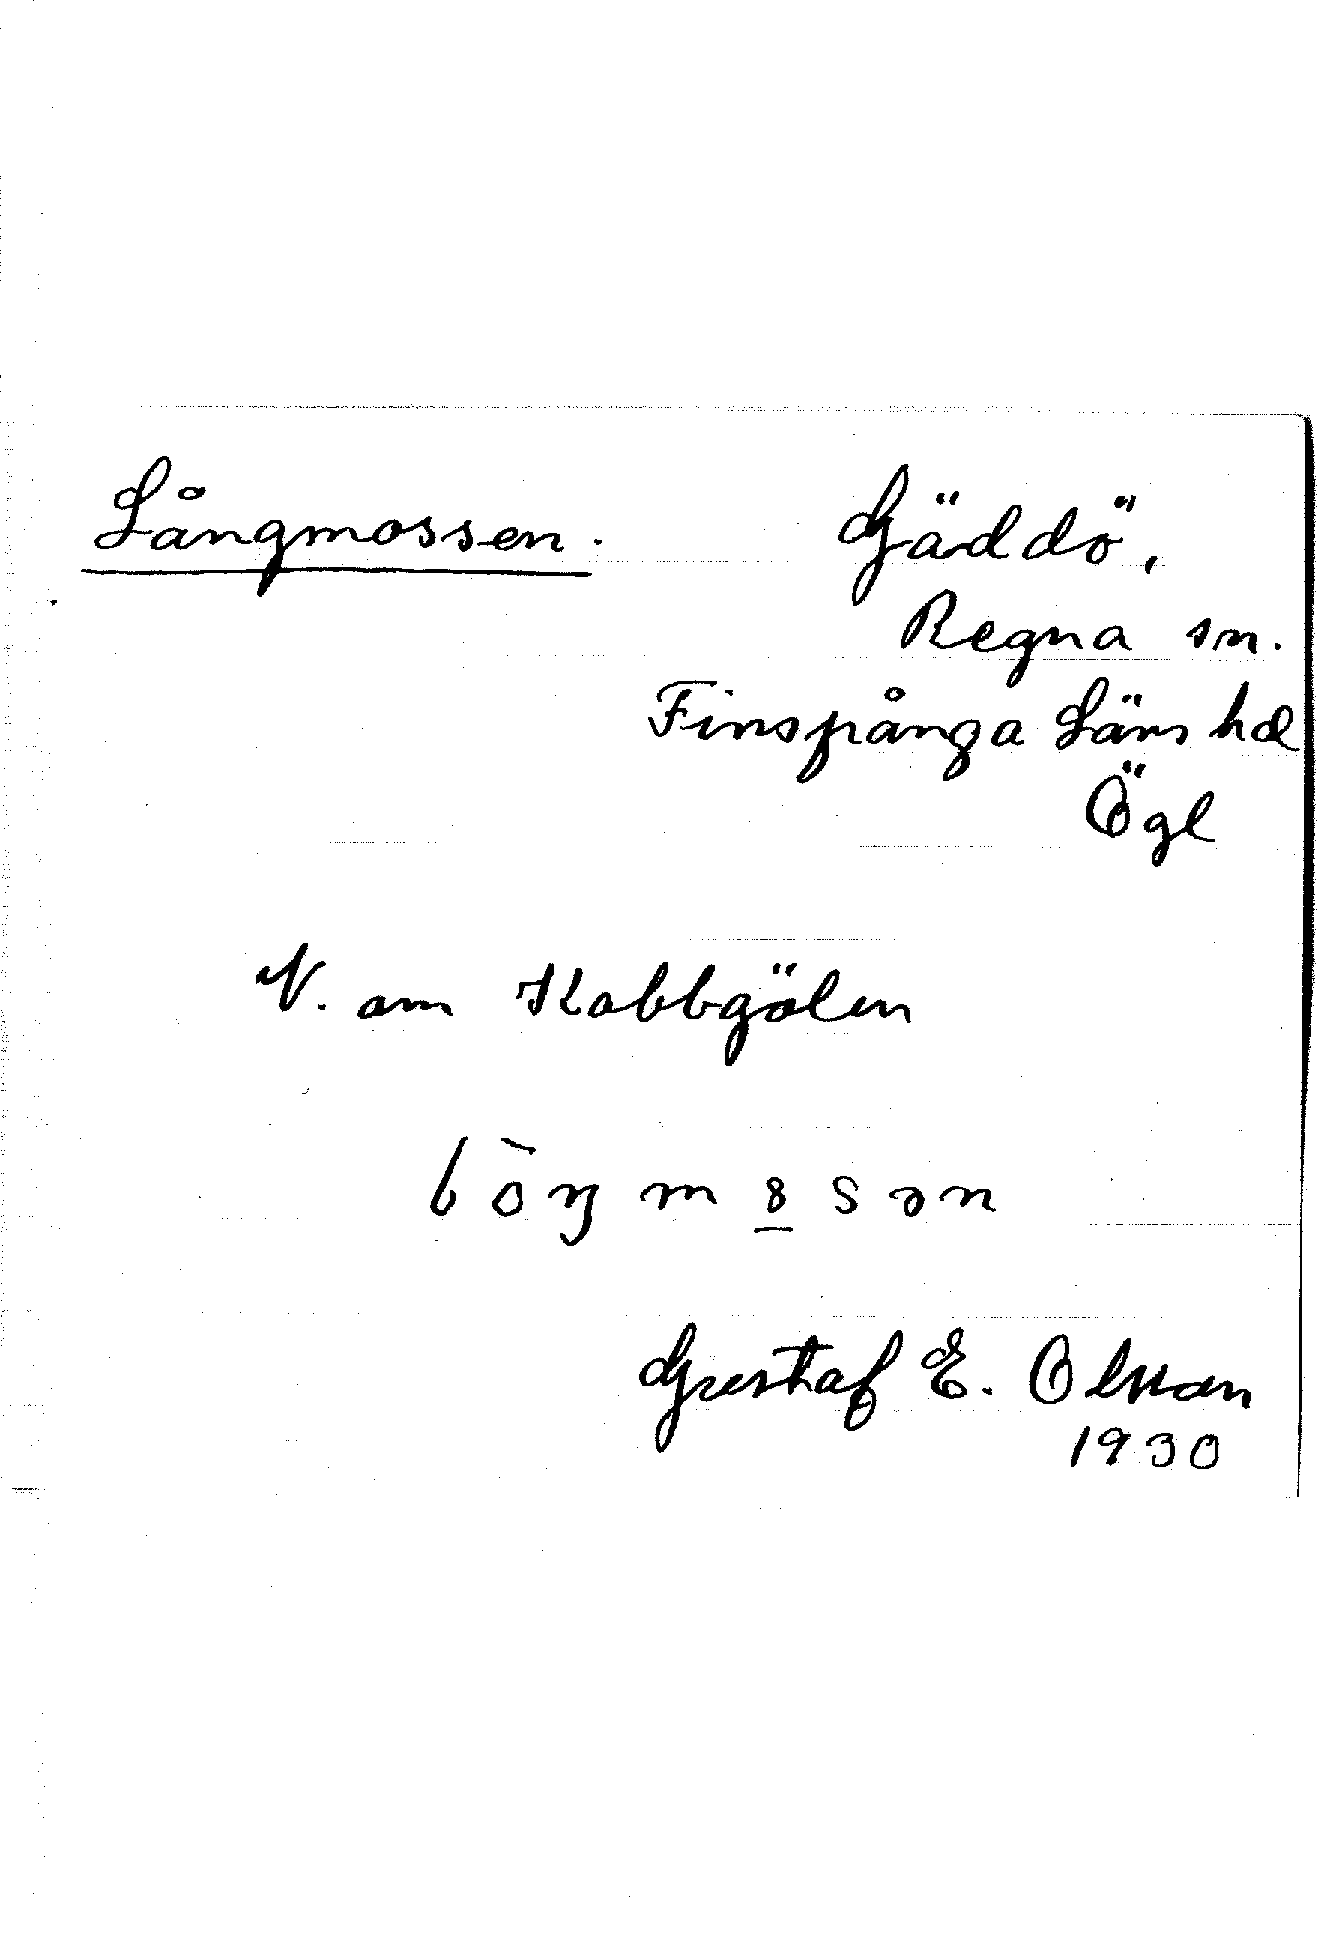 Långmossen. Gäddö,
Regna sn.
Finspånga Läns hd
Ögl
N. om Kabbgölen
lòŋm8sən
Gustaf E. Olsson
1930